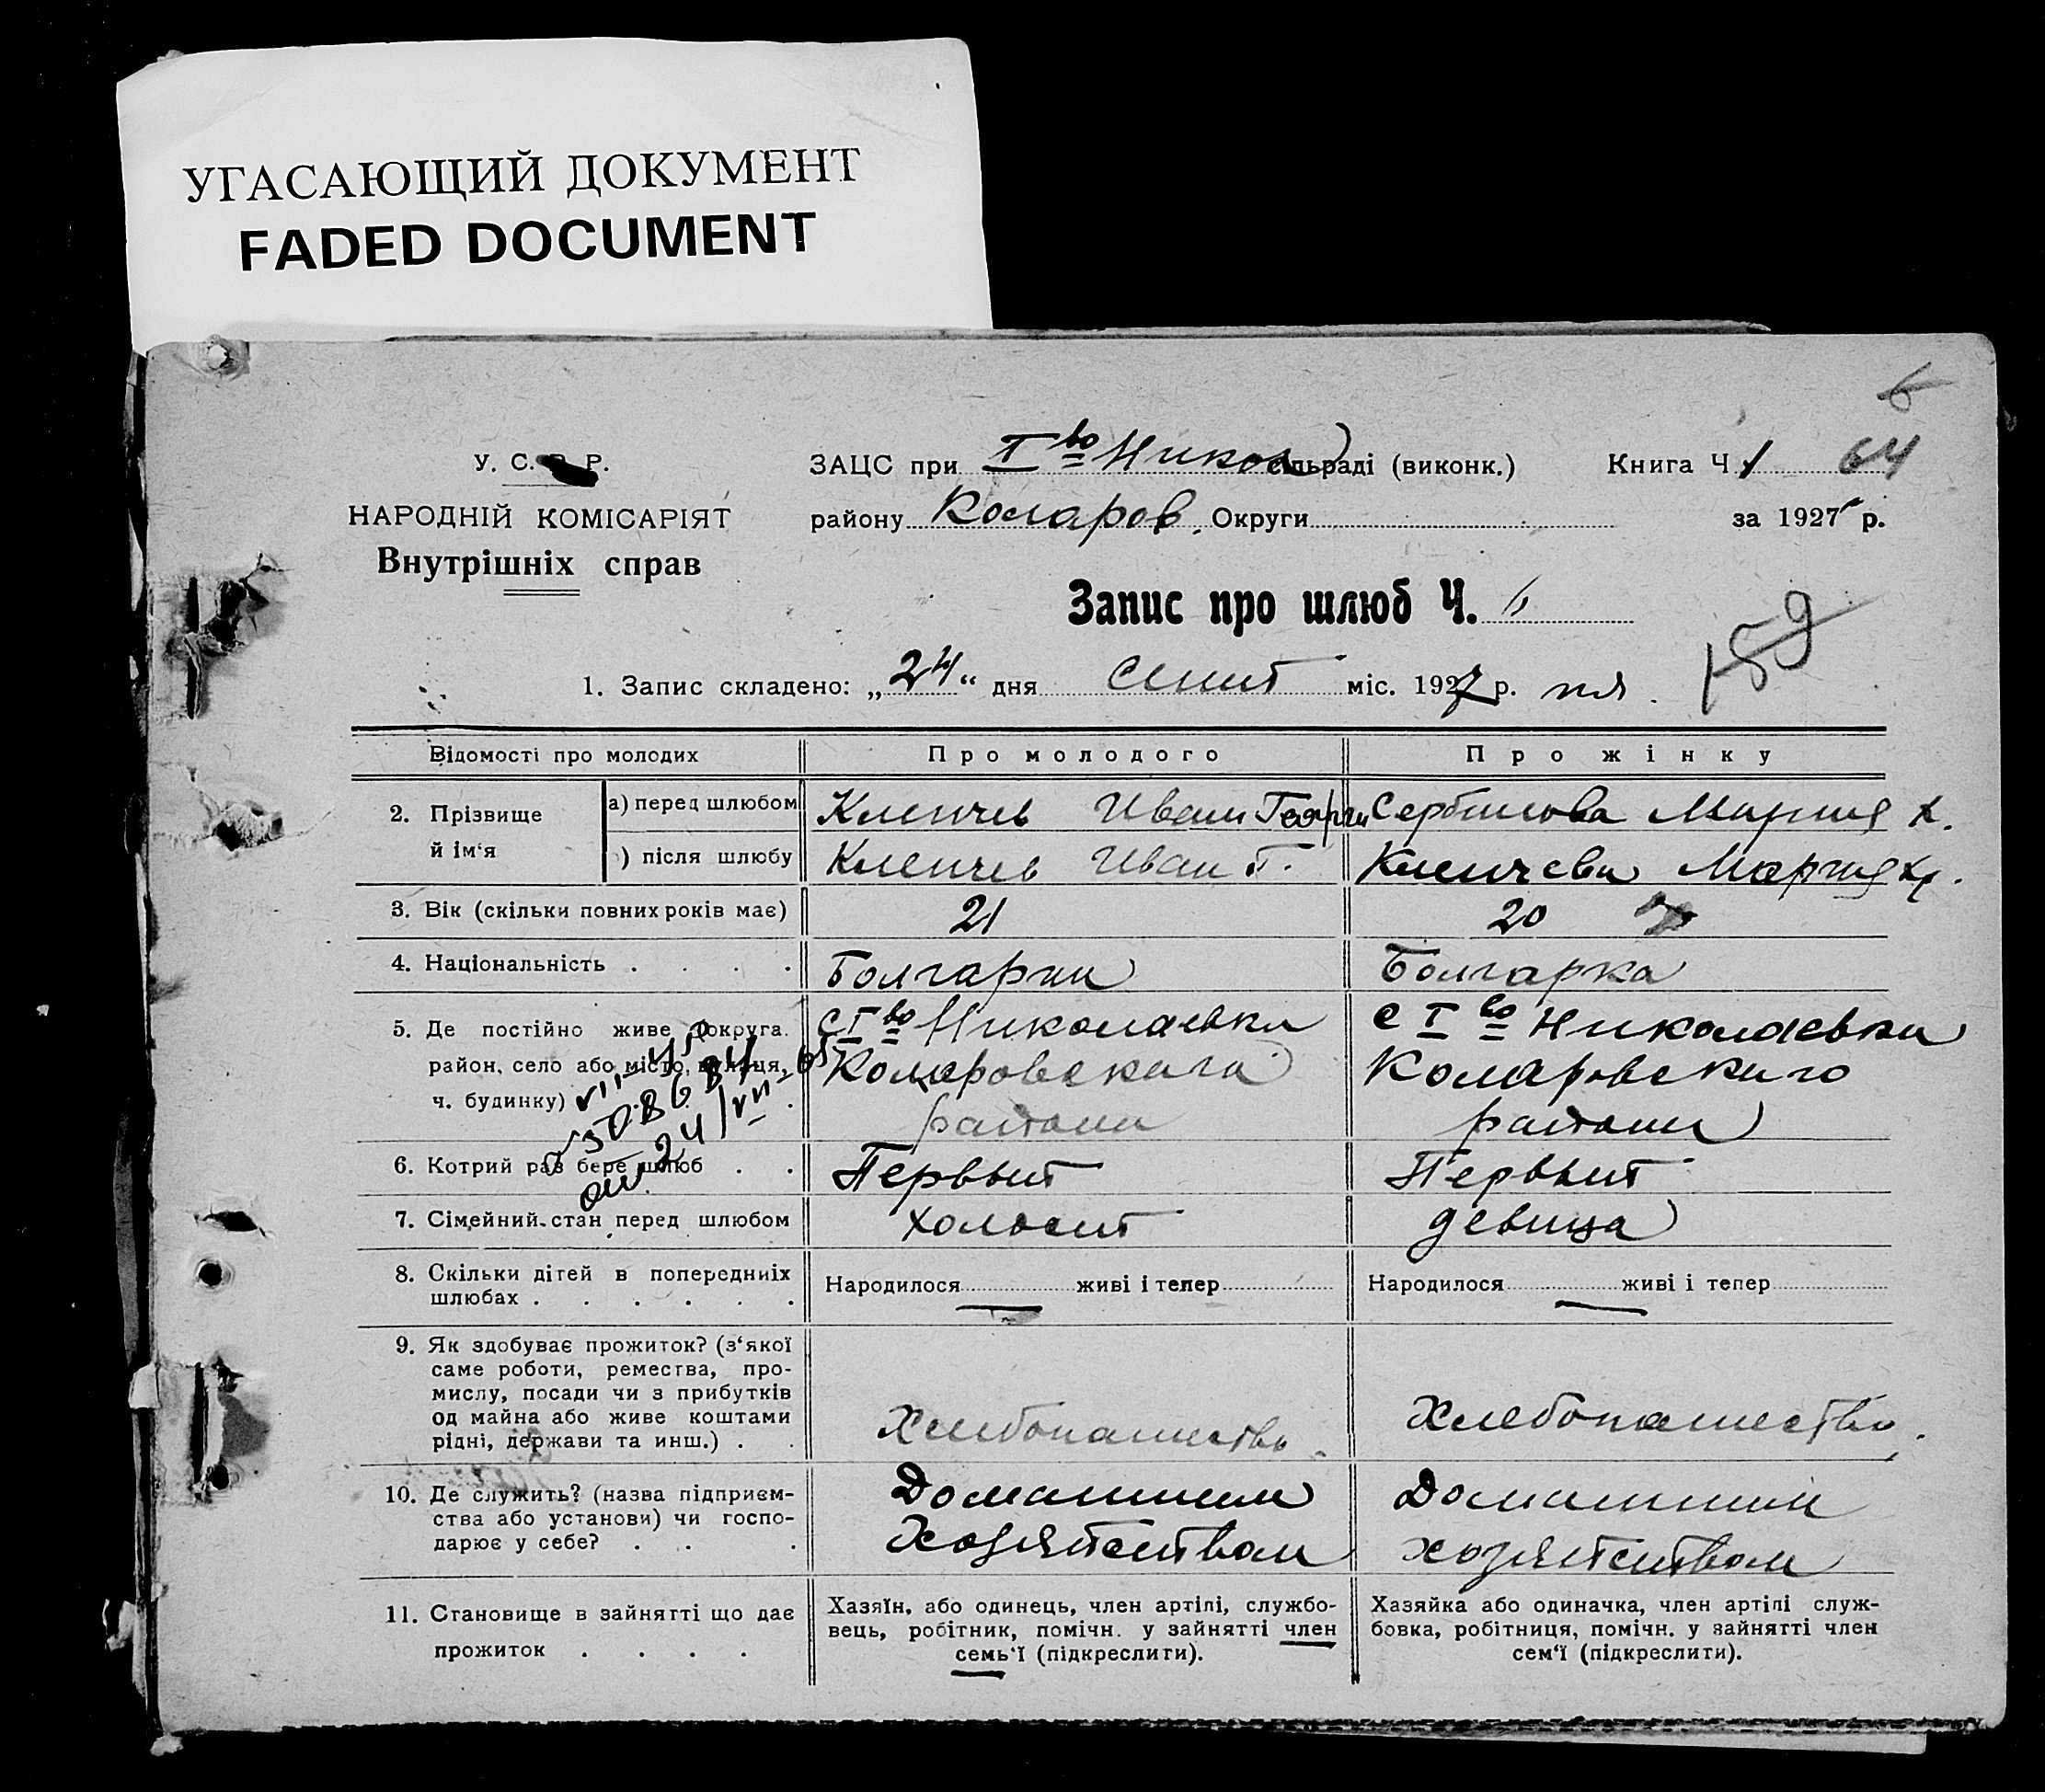 УГАСАЮЩИЙ ДОКУМЕНТ
FADED DOCUMENT
6
У. С. Р.
НАРОДНІЙ КОМІСАРІЯТ
Внутрішніх справ
ЗАЦС при I во Никол сільраді (виконк.) Книга Ч 1 64
району Коларов. Округи за 1927 р.
Запис про шлюб Ч. 6
159
1. Запис складено: „24“ дня Сент міс. 1927 р.
Відомості про молодих Про молодого Про жінку
2. Прізвище й ім‘я
а) перед шлюбом Иван Георги Мария Х.
) після шлюбу Иван Г. Мария Хр.
3. Вік (скільки повних років має) 21 20
4. Національність . . . . Болгарин Болгарка
5. Де постійно живе (округа. с I во Николаевки с I во Николаевки
район, село або місто, вулиця, Коларовскага Коларовскиго
ч. будинку) . района района
24/VII-65
6. Котрий раз бере шлюб . . Первый Первый
7. Сімейний стан перед шлюбом холост девица
8. Скільки дітей в попередниіх Народилося живі і тепер Народилося живі і тепер
шлюбах . . . . . .
9. Як здобуває прожиток? (з‘якої
саме роботи, ремества, про-
мислу, посади чи з прибутків
од майна або живе коштами Хлебопашество Хлебопашество.
рідні, держави та инш.) . .
10. Де служить? (назва підприєм- Домашним Домашним
ства або установи) чи госпо- Хозяйством хозяйством
дарює у себе? . . .
11. Становище в зайнятті що дає
прожиток . . . .
Хазяїн, або одинець, член артілі, службо-
вець, робітник, помічн. у зайнятті член
семь‘ї (підкреслити).
Хазяйка або одиначка, член артілі служ-
бовка, робітниця, помічн. у зайнятті член
сем‘ї (підкреслити).